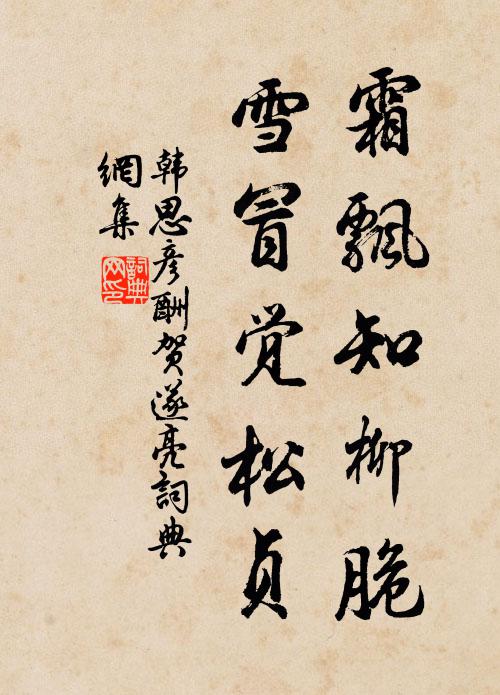 霜飘知柳脆
雪冒觉松贞
韩思彦酬贺遂亮词典
網集
詞典
网印